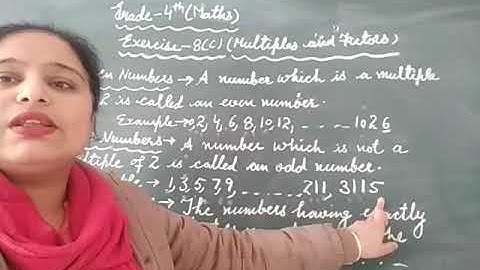 Grade-4th (Maths)
Exercise-8(C) (Multiples and Factors)
Numbers → A number which is a multiple
2 is called an even number.
Example → 2, 4, 6, 8, 10, 12, ........ 1026
Numbers → A number which is not a
of 2 is called an odd number.
→ 1, 3, 5, 7, 9, ........ 211, 3115
→ The numbers having exactly
the